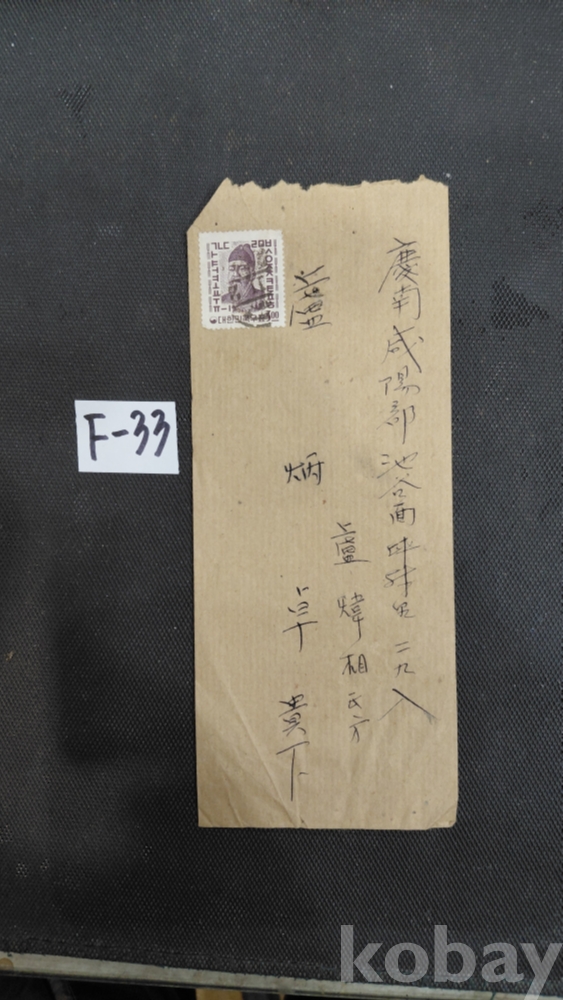 慶南咸陽郡池谷面 里 二九八
盧煒相氏方
盧 炳 卓 貴下
F-33
kobay